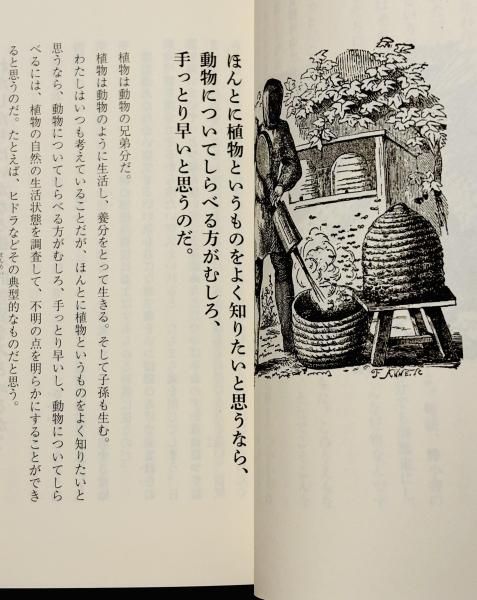 ほんとに植物というものをよく知りたいと思うなら、
動物についてしらべる方がむしろ、
手っとり早いと思うのだ。
植物は動物の兄弟分だ。
植物は動物のように生活し、養分をとって生きる。そして子孫も生む。
わたしはいつも考えていることだが、ほんとに植物というものをよく知りたいと
思うなら、動物についてしらべる方がむしろ、手っとり早いし、動物についてしら
べるには、植物の自然の生活状態を調査して、不明の点を明らかにすることができ
ると思うのだ。たとえば、ヒドラなどその典型的なものだと思う。